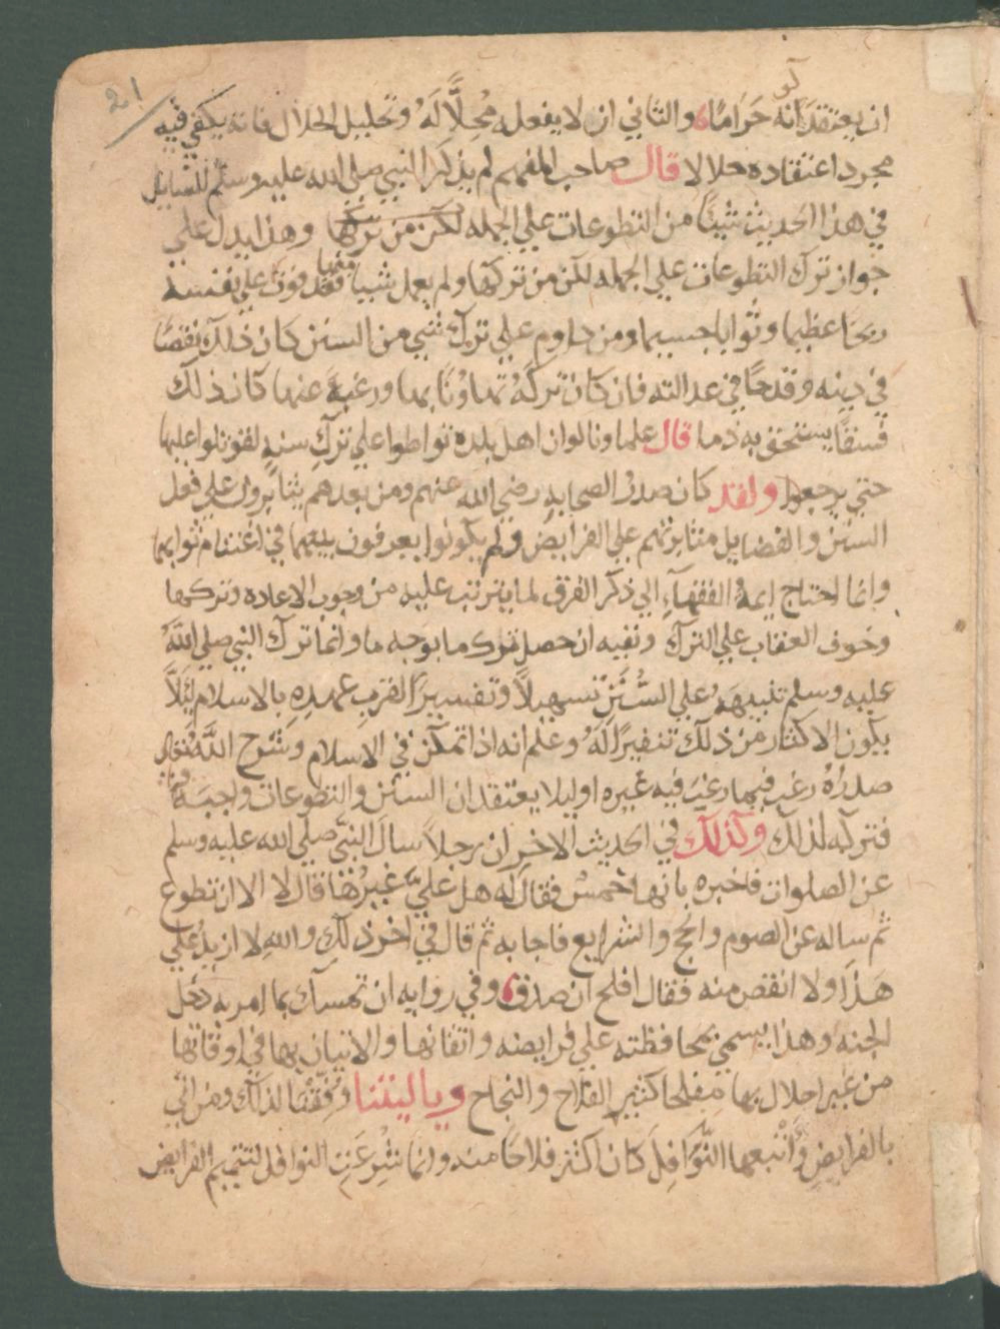 21
ان يعتقد انه حَرَامًا والثاني ان لا يفعله مُحِلًّا لَهُ وتحليل الحلال فانه يكفي فيه
مجرد اعتقاده حلالا قال صاحب المفهم لم يذكر النبي صلي الله عليه وسلم للسايل
في هذا الحديث شيئًا من التطوعات علي الجمله وهذا يدل علي
جواز ترك التطوعات علي الجمله لكن من تركها ولم يعمل شييا منها فقد فوت علي نفسه
ربحا عظيما وثوابا جسيما ومن داوم علي ترك شي من السنن كان ذلك نقصًا
في دينه وقدحًا في عدالته فان كان تركَهُ تهاونًا بها ورغبةً عنها كان ذلك
فسقًا يستحق به ذما قال علماونا لوان اهل بلدة تواطوا علي ترك سنةٍ لقوتلوا عليها
حتي يرجعوا ولقد كان صدر الصحابه رضي الله عنهم ومن بعدهم يثابرون علي فعل
السنن والفضايل مثابرتهم علي الفرايض ولم يكونوا يعرفون بينهما في اغتنام ثوابها
وانما احتاج ايمة الفقهآء الي ذكر الفرق لما يترتب عليه من وجوب الاعاده وتركها
وخوف العقاب علي الترك ونفيه ان حصل ترك ما بوجه ما وانما ترك النبي صلي اللهُ
عليه وسلم تنبيهَهُ علي السُّنَنِ تسهيلاً وتفسيرًا لقرب عهدهِ بالاسلام لئَلاَّ
يكون الاكثار من ذلك تنفيرًا لَهُ وعلم انه اذا تمكن في الاسلام وشرح اللَّهُ تعالي
صدرُهُ رغب فيما رغبَ فيه غيره او ليلا يعتقد ان السنن والتطوعات واجبَة
فتركه لذلك وكذلك في الحديث الاخر ان رجلاً سال النبي صلي الله عليه وسلم
عن الصلوات فاخبره بانها خمسٌ فقال له هل عليَّ غيرُها قال لا الا ان تطوع
ثم ساله عن الصوم والحج والشرايع فاجابه ثم قال في اخر ذلك والله لا ازيدُ علي
هذا ولا انقص منه فقال افلح ان صدق وفي روايه ان تمسك بما امر به دخل
الجنه وهذا يسمي بمحافظته علي فرايضه واتقانها والاتيان بها في اوقاتها
من غير اخلال بها مفلحا كثير الفلاح والنجاح وياليتنا وُفِّقْنا لذلك ومن اتي
بالفرايضِ وأَتْبعها النَّوَافِلَ كان اكثر فلاحًا منه وانما شُرِعَتِ النوافل لتتميم الفرايض